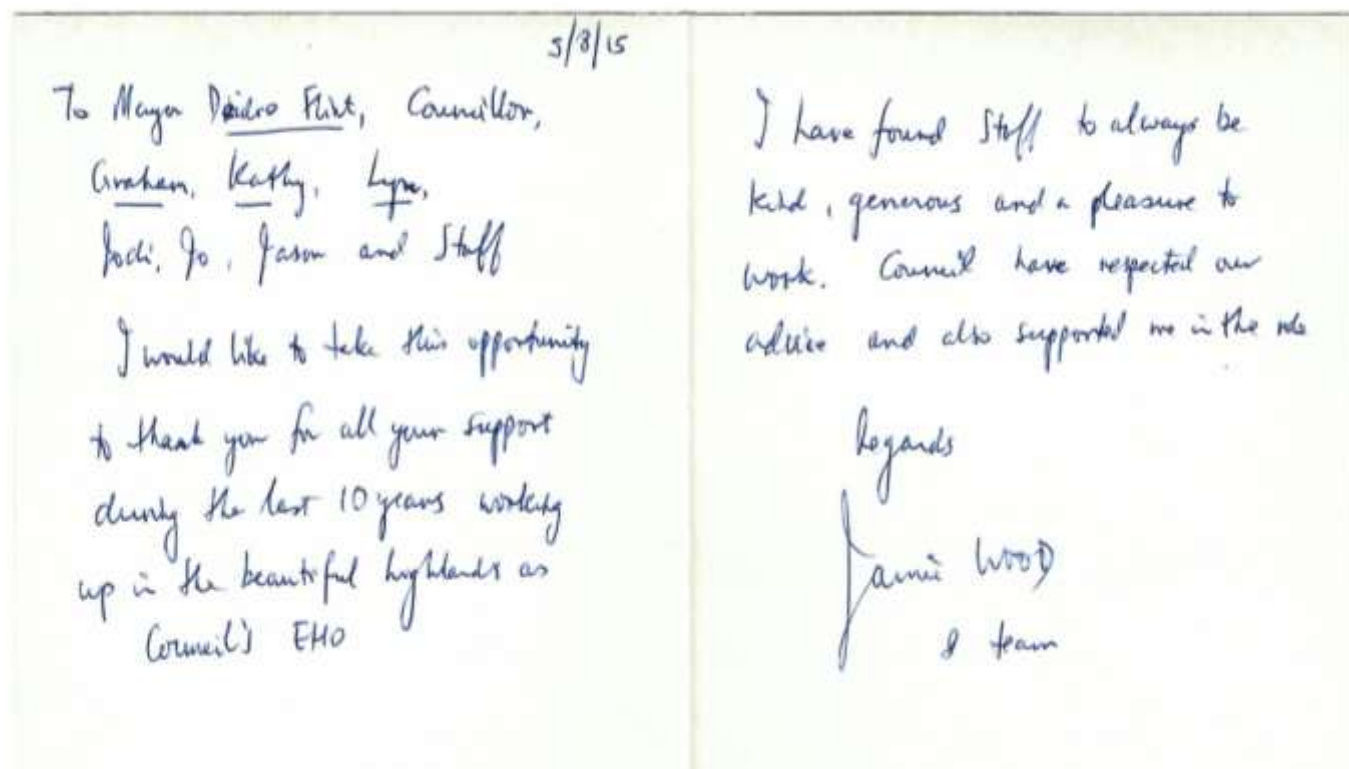 5/8/15
To Mayor Deidre Flint, Councillor,
Graham, Kathy, Lyn,
Jodi, Jo, Jason and Staff
I would like to take this opportunity
to thank you for all your support
during the last 10 years working
up in the beautiful highlands as
Council's EHO
I have found Staff to always be
kind, generous and a pleasure to
work. Council have respected our
advice and also supported me in the role
Regards
Jamie WOOD
& team